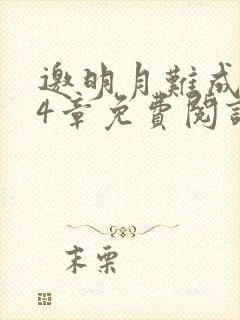 邀明月難成
4章免費閱讀
末栗